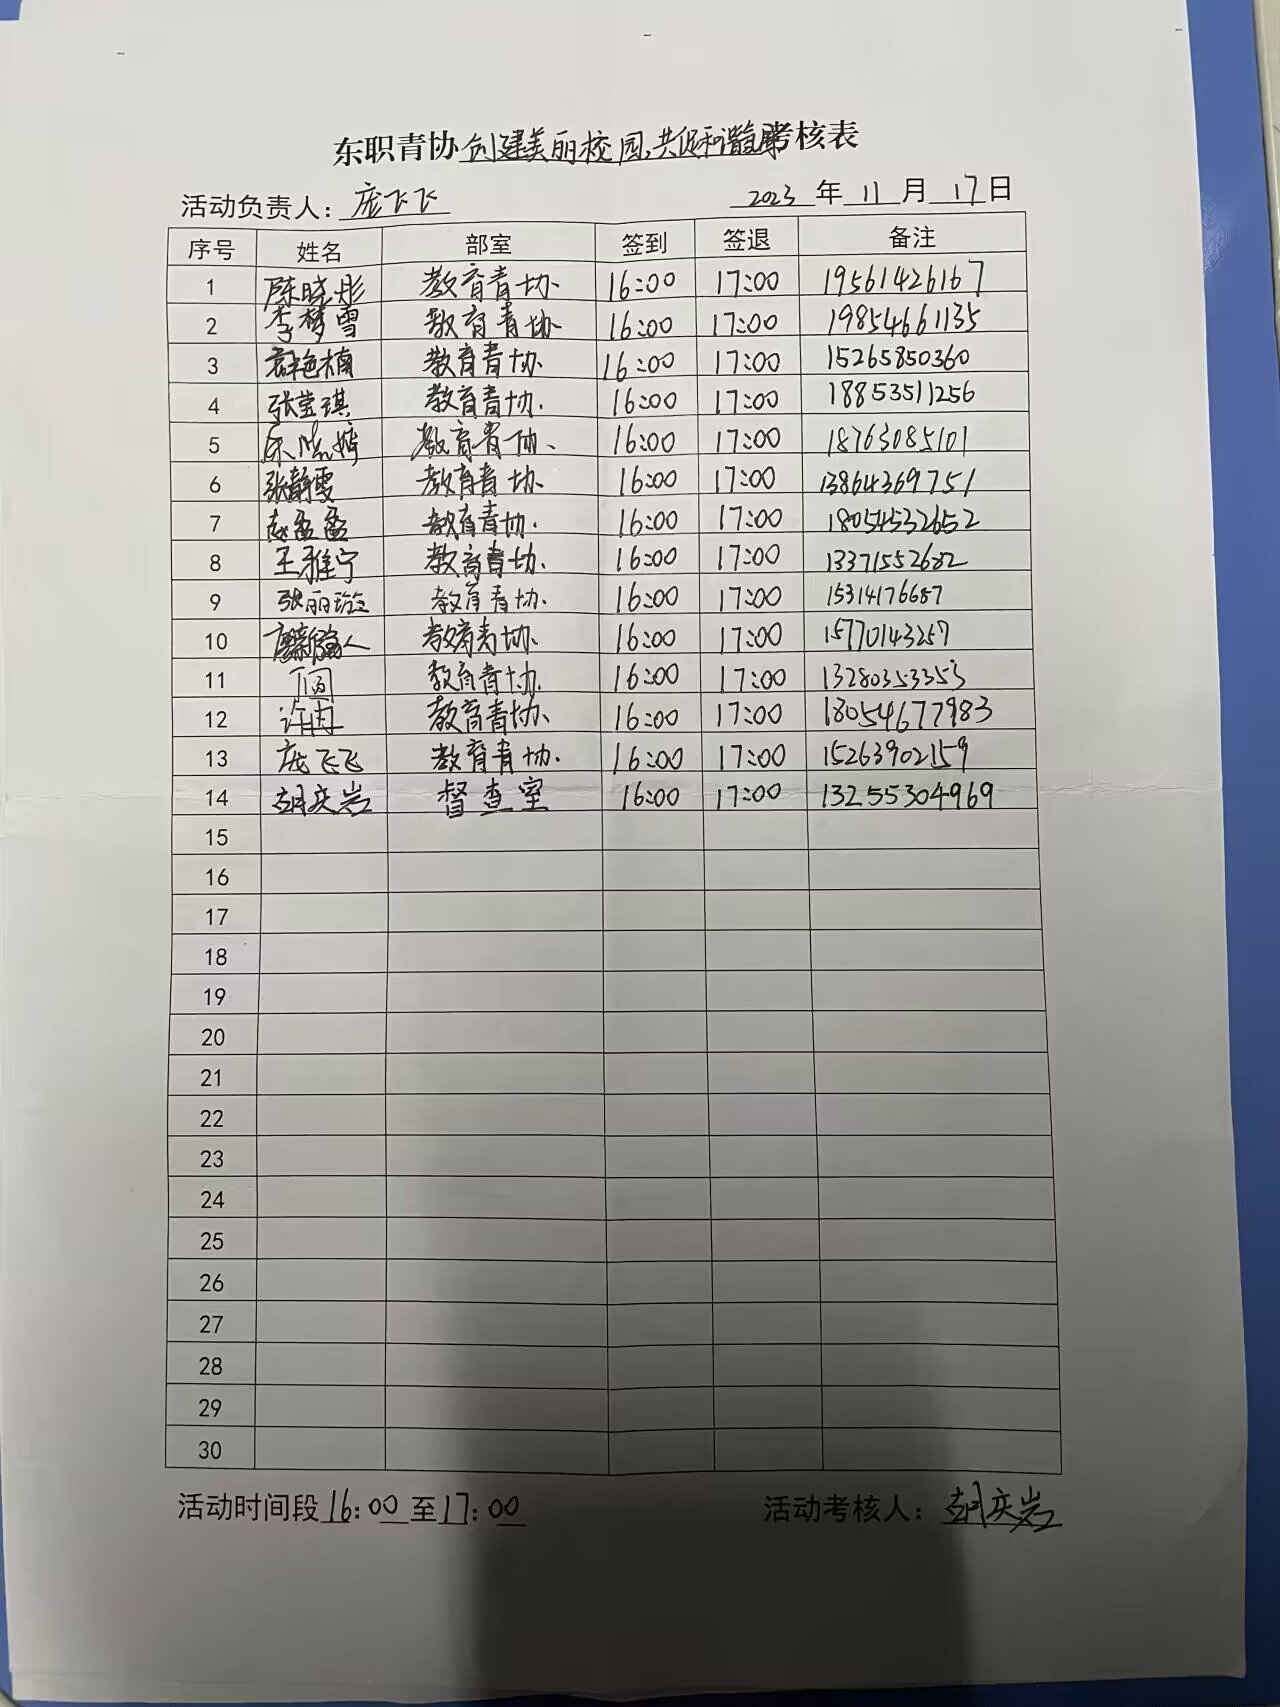 东职青协创建美丽校园、共促和谐考核表
活动负责人：庞飞飞 2023年11月17日
序号 姓名 部室 签到 签退 备注
1 陈晓彤 教育青协. 16:00 17:00 19561426167
2 李梦雪 教育青协 16:00 17:00 19854661135
3 教育青协. 16:00 17:00 15265850360
4 张莹琪 教育青协. 16:00 17:00 18853511256
5 教育青协、 16:00 17:00 18763085101
6 张静雯 教育青协. 16:00 17:00 13864369751
7 赵孟孟 教育青协. 16:00 17:00 18054532652
8 王雅宁 教育青协. 16:00 17:00 13371552682
9 张丽 教育青协. 16:00 17:00 15314176687
10 教育青协. 16:00 17:00 15770143257
11 教育青协. 16:00 17:00 13280353353
12 许冉 教育青协、 16:00 17:00 18054677983
13 庞飞飞 教育青协. 16:00 17:00 15263902159
14 胡庆岩 督查室 16:00 17:00 13255304969
15
16
17
18
19
20
21
22
23
24
25
26
27
28
29
30
活动时间段16:00至17:00 活动考核人：胡庆岩